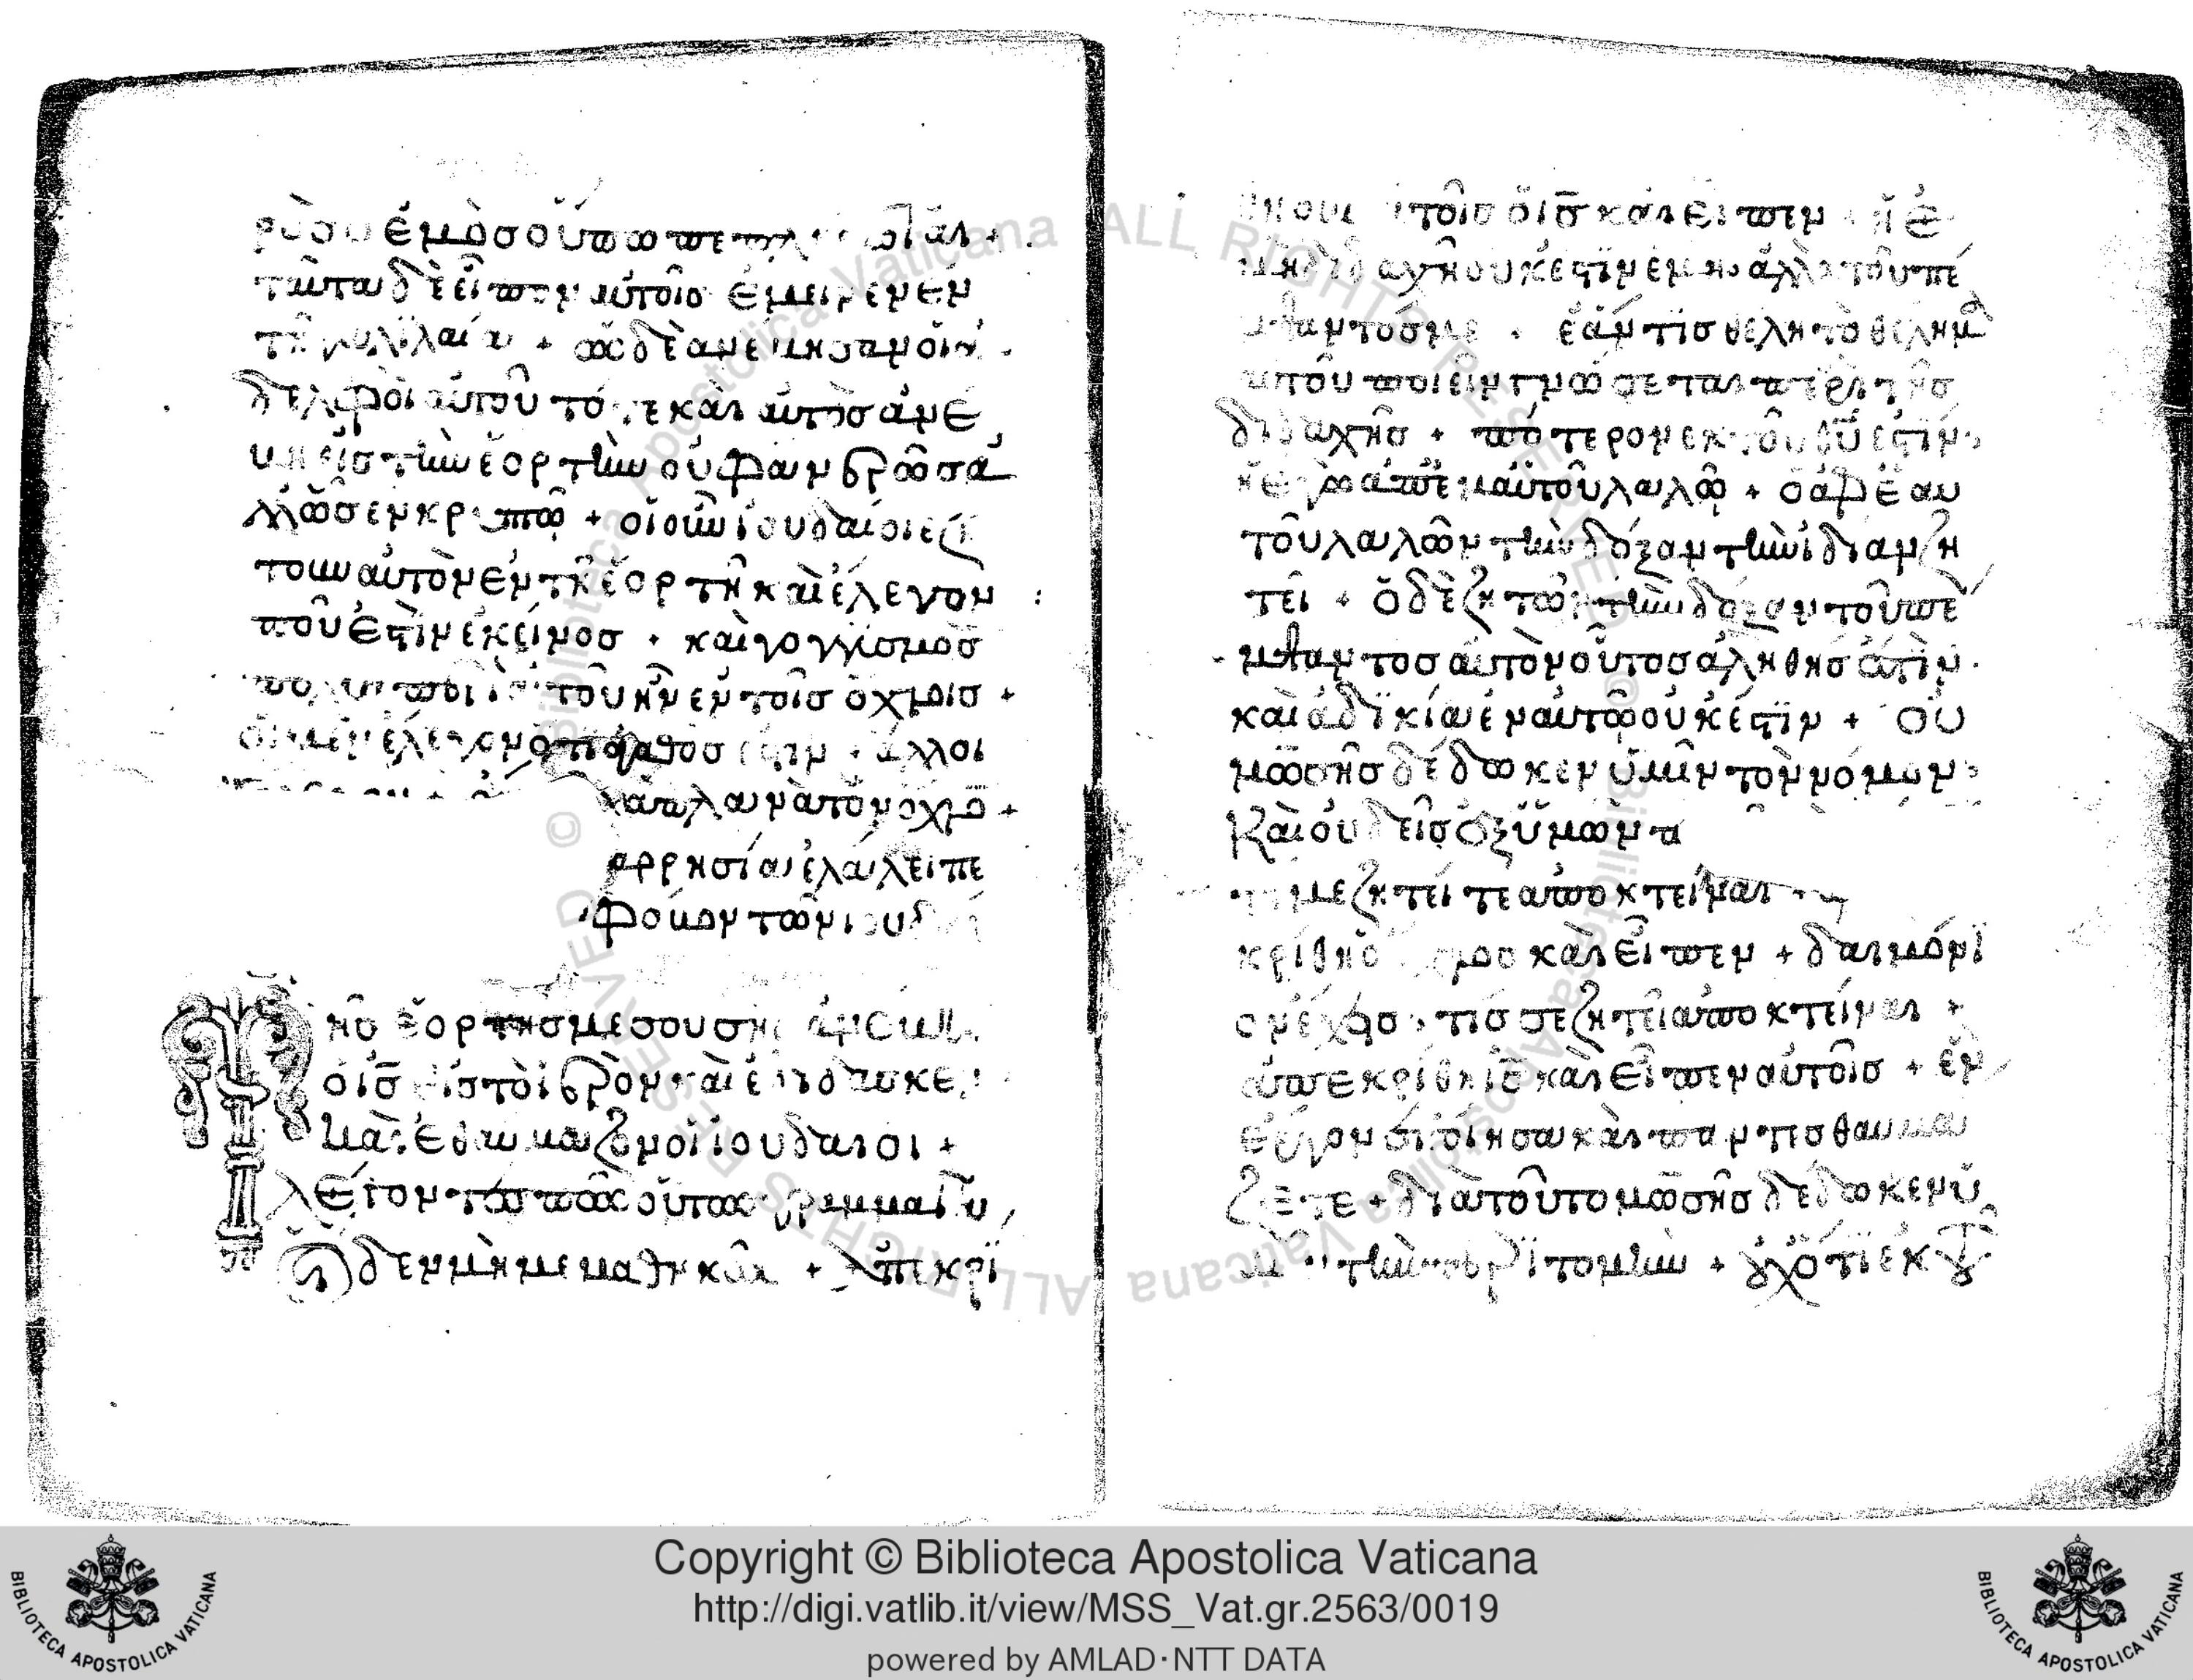 ρὸσ ὁ ἐμὸσ οὔπω πεπλήρωται +
ταῦτα δὲ εἰπὼν αὐτοῖσ ἔμεινεν ἐν
τῇ γαλιλαία + ὡσ δὲ ἀνέβησαν οἱ ἀ
δελφοὶ αὐτοῦ τότε καὶ αὐτὸσ ἀνέ
βη εἰσ τὴν ἑορτὴν οὐ φανερῶσ ἀ
λλ ὡσ ἐν κρυπτῶ + οἱ οὖν ἰουδαίοι ἐζή
τουν αὐτὸν ἐν τῇ ἑορτῇ καὶ ἔλεγον :
ποῦ ἐστὶν ἐκείνοσ + καὶ γογγϊσμὸσ
πολὺσ περὶ αὐτοῦ ἦν ἐν τοῖσ ὄχλοισ +
οἱ μὲν ἔλεγον ὅτι ἀγαθόσ ἐστιν + ἄλλοι
πλανᾶ τὸν ὄχλο +
παρρησία ἐλάλει πε
φόβον τῶν ἰουδαί
τῆσ ἑορτῆσ μεσούσησ ἀνέβη
ὁ ισ εἰσ τὸ ἱερὸν καὶ ἐδίδασκεν
καὶ ἐθαύμαζον οἱ ἰουδαῖοι +
λέγοντεσ πῶσ οὗτοσ γράμματα
οἶδεν μὴ μεμαθηκώσ + ἀπεκρί
θη οὖν αὐτοῖσ ὁ ισ καὶ εἶπεν + ἡ ἐ
μὴ διδαχὴ οὐκ ἔστϊν ἐμὴ ἀλλὰ τοῦ πέ
μψαντόσ με + ἐάν τϊσ θέλη τὸ θέλημα
αὐτοῦ ποιεῖν γνώσεται περὶ τῆσ
διδαχῆσ + πότερον ἐκ τοῦ θυ ἐστὶν
ἢ ἐγὼ ἀπ ἐμαυτοῦ λαλῶ + ὁ ἀφ ἑαυ
τοῦ λαλῶν τὴν δόξαν τὴν ἰδίαν ζη
τεῖ + ὁ δὲ ζητῶν τὴν δόξαν τοῦ πέ
μψαντοσ αὐτὸν οὗτοσ ἀληθήσ ἐστὶν
καὶ ἀδϊκία ἐν αὐτῶ οὐκ ἔστϊν + οὐ
μωσῆσ δέδωκεν ὑμῖν τὸν νόμον
καὶ οὐδεὶσ ἐξ ὑμῶν π
τί με ζητεῖτε ἀποκτεῖναι
κρίθη ὁ ὄχλοσ καὶ εἶπεν + δαιμόνϊ
ον ἔχεισ + τίσ σε ζητεῖ ἀποκτεῖναι +
ἀπεκρίθη ισ καὶ εἶπεν αὐτοῖσ + ἓν
ἔργον ἐποίησα καὶ πάντεσ θαυμά
ζετε + διὰ τοῦτο μωσῆσ δέδωκεν ὑ
μῖν τὴν περϊτομὴν + οὐχ ὅτϊ ἐκ τοῦ
Copyright © Biblioteca Apostolica Vaticana
http://digi.vatlib.it/view/MSS_Vat.gr.2563/0019
powered by AMLAD·NTT DATA
BIBLIOTECA APOSTOLICA VATICANA
BIBLIOTECA APOSTOLICA VATICANA
© Biblioteca Apostolica Vaticana ALL RIGHTS RESERVED © Biblioteca Apostolica Vaticana ALL RIGHTS RESERVED